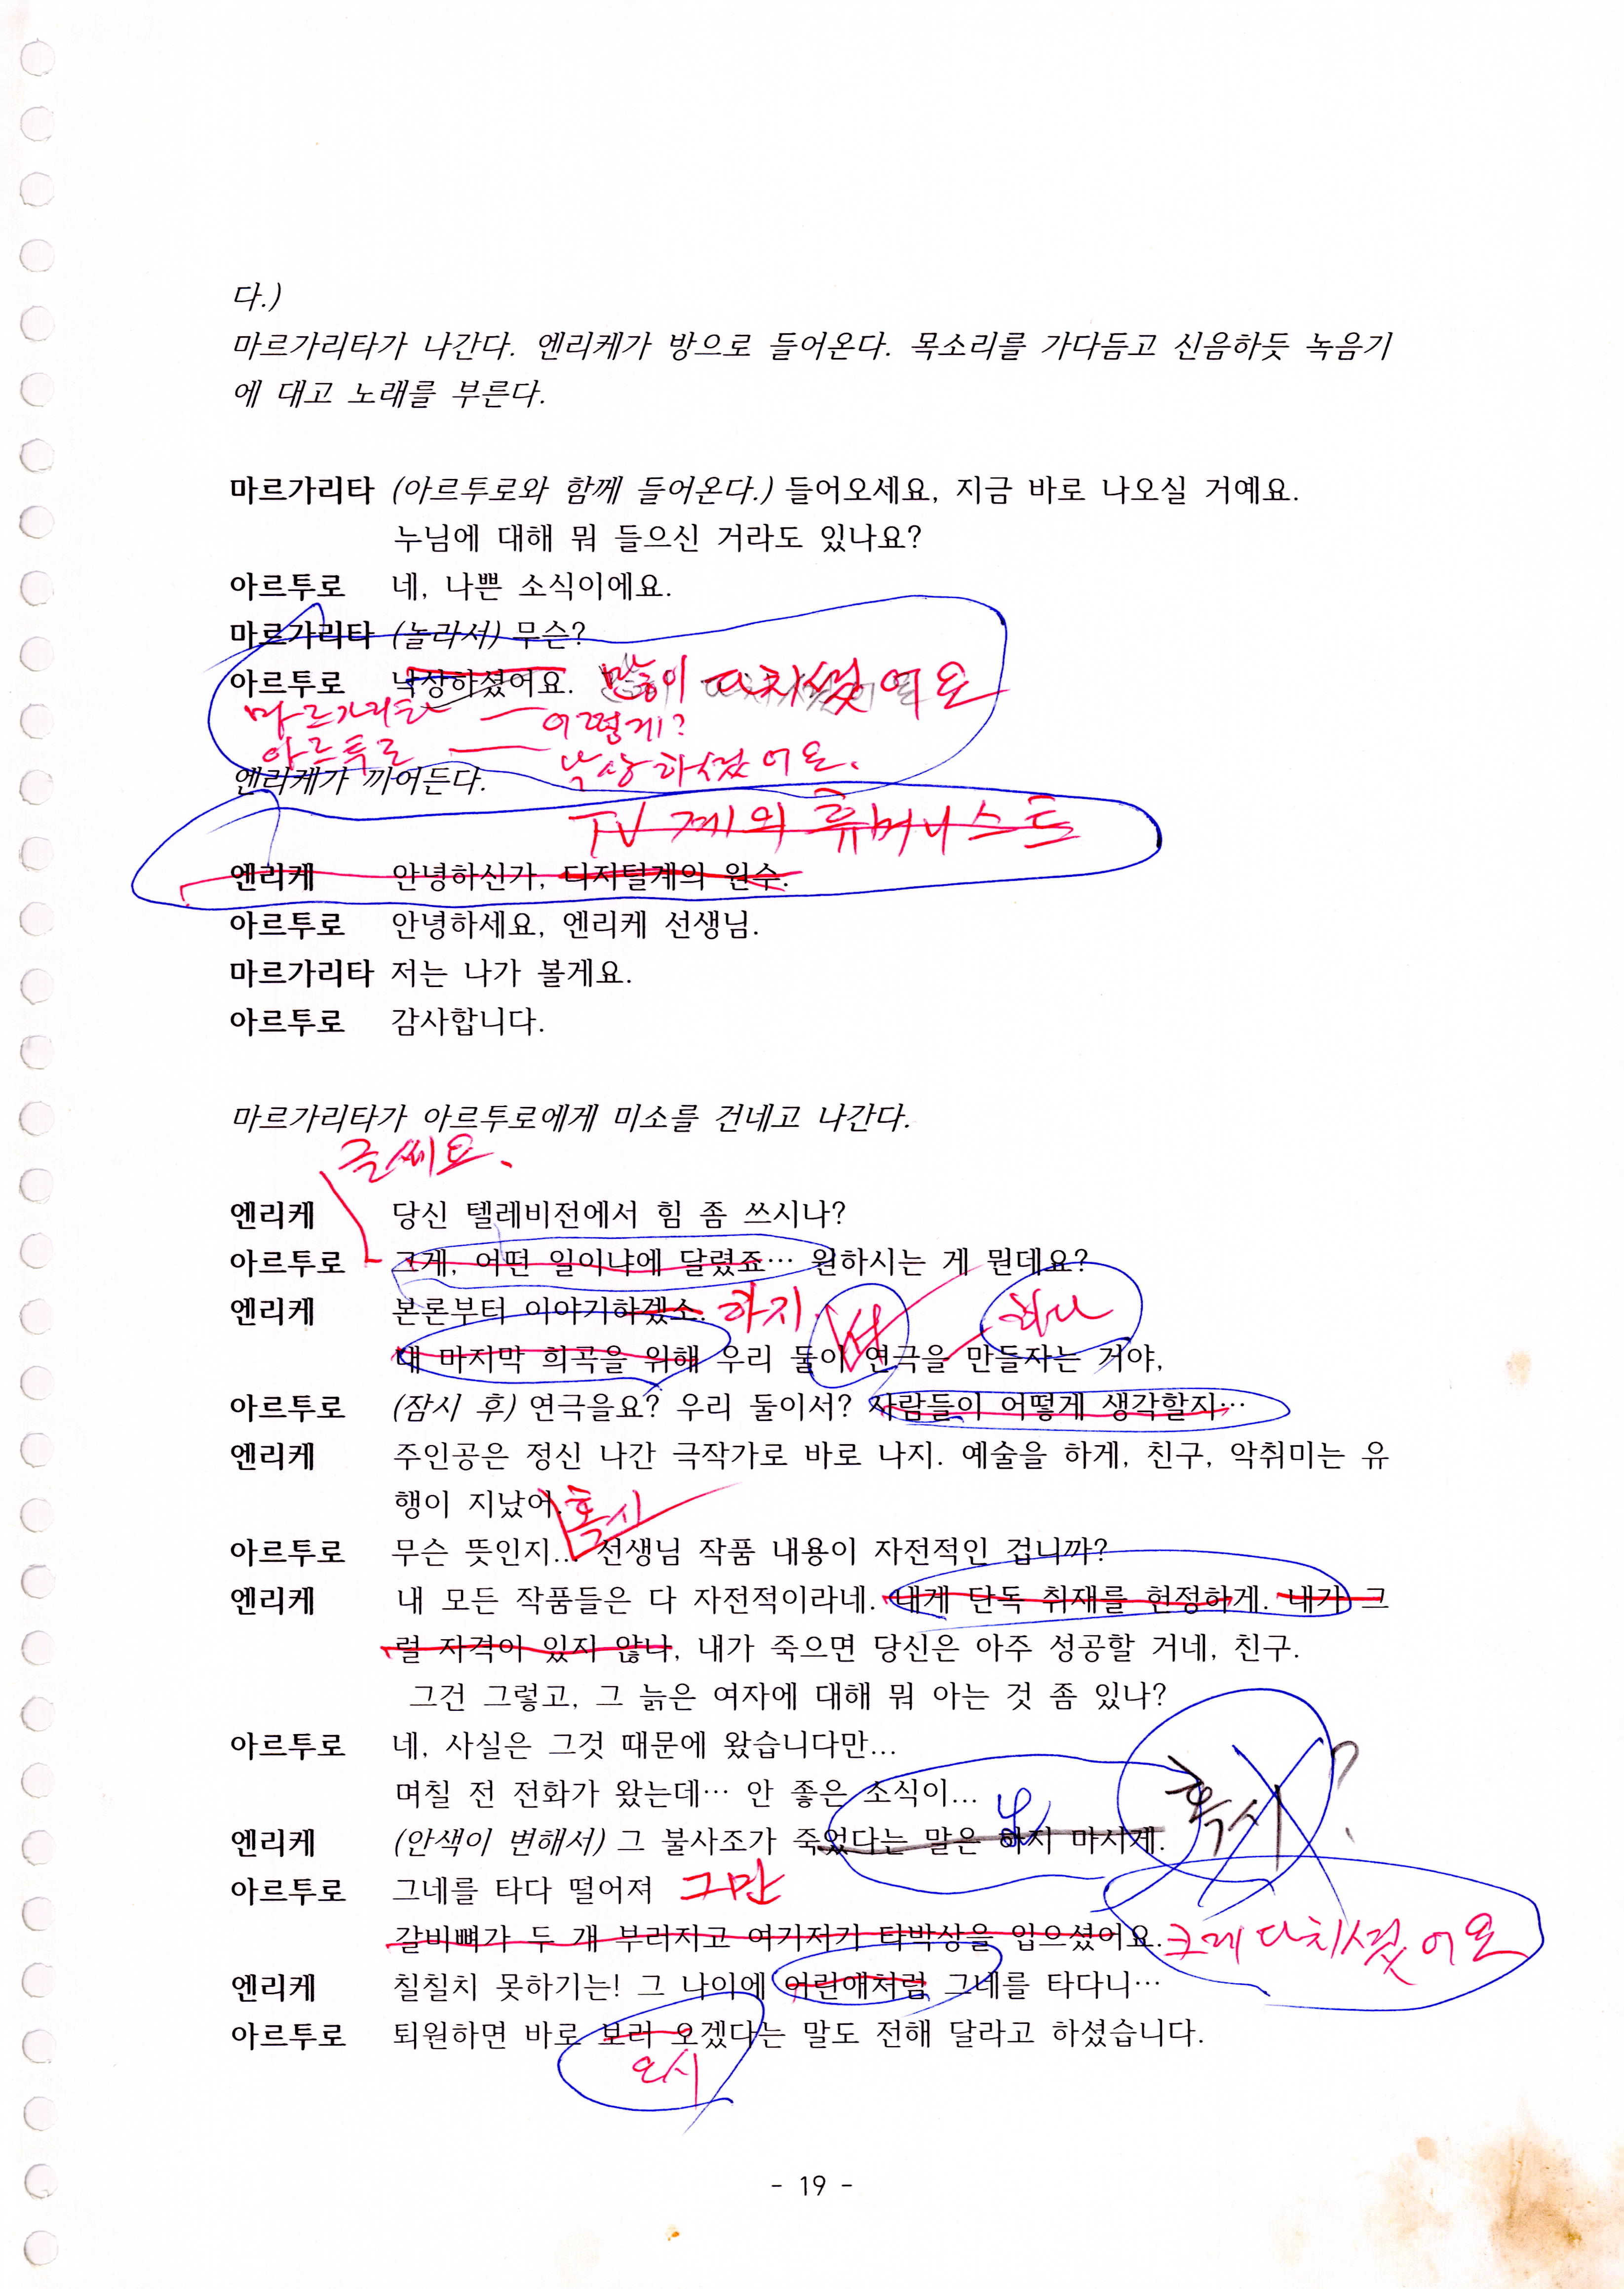 다.)
마르가리타가 나간다. 엔리케가 방으로 들어온다. 목소리를 가다듬고 신음하듯 녹음기
에 대고 노래를 부른다.
마르가리타 (아르투로와 함께 들어온다.) 들어오세요, 지금 바로 나오실 거예요.
누님에 대해 뭐 들으신 거라도 있나요?
아르투로 네, 나쁜 소식이에요.
마르가리타 (놀라서) 무슨?
아르투로 낙상하셨어요. 많이 다치셨어요
마르가리타 — 어떻게?
아르투로 — 낙상하셨어요.
엔리케가 끼어든다.
TV계의 휴머니스트
엔리케 안녕하신가, 디지털계의 원수.
아르투로 안녕하세요, 엔리케 선생님.
마르가리타 저는 나가 볼게요.
아르투로 감사합니다.
마르가리타가 아르투로에게 미소를 건네고 나간다.
글쎄요.
엔리케 당신 텔레비전에서 힘 좀 쓰시나?
아르투로 그게, 어떤 일이냐에 달렸죠… 원하시는 게 뭔데요?
엔리케 본론부터 이야기하겠소. 하지. 하나
내 마지막 희곡을 위해 우리 둘이 연극을 만들자는 거야,
아르투로 (잠시 후) 연극을요? 우리 둘이서? 사람들이 어떻게 생각할지…
엔리케 주인공은 정신 나간 극작가로 바로 나지. 예술을 하게, 친구, 악취미는 유
행이 지났어. 혹시
아르투로 무슨 뜻인지... 선생님 작품 내용이 자전적인 겁니까?
엔리케 내 모든 작품들은 다 자전적이라네. 내게 단독 취재를 헌정하게. 내가 그
럴 자격이 있지 않나, 내가 죽으면 당신은 아주 성공할 거네, 친구.
그건 그렇고, 그 늙은 여자에 대해 뭐 아는 것 좀 있나?
아르투로 네, 사실은 그것 때문에 왔습니다만...
며칠 전 전화가 왔는데… 안 좋은 소식이... 혹시?
엔리케 (안색이 변해서) 그 불사조가 죽었다는 말은 하지 마시게.
아르투로 그네를 타다 떨어져 그만
갈비뼈가 두 개 부러지고 여기저기 타박상을 입으셨어요. 크게 다치셨어요
엔리케 칠칠치 못하기는! 그 나이에 어린애처럼 그네를 타다니…
아르투로 퇴원하면 바로 보러 오겠다는 말도 전해 달라고 하셨습니다.
오시
- 19 -